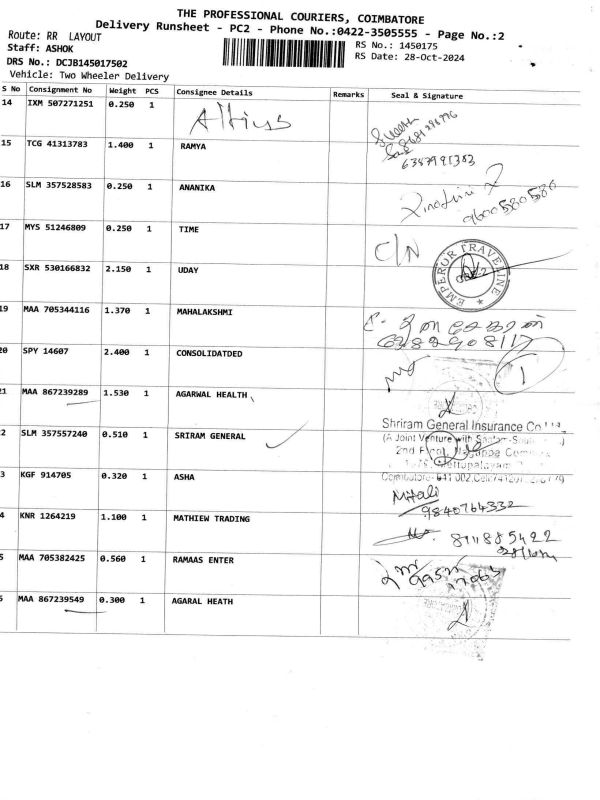 THE PROFESSIONAL COURIERS, COIMBATORE
Delivery Runsheet - PC2 - Phone No.:0422-3505555 - Page No.:2
Route: RR LAYOUT
Staff: ASHOK
RS No.: 1450175
DRS No.: DCJB145017502
RS Date: 28-Oct-2024
Vehicle: Two Wheeler Delivery
S No Consignment No Weight PCS Consignee Details Remarks Seal & Signature
14 IXM 507271251 0.250 1 Altius
15 TCG 41313783 1.400 1 RAMYA
6387991383
16 SLM 357528583 0.250 1 ANANIKA
9600580586
17 MYS 51246809 0.250 1 TIME C/N
EMPEROR TRAVELINE
18 SXR 530166832 2.150 1 UDAY
19 MAA 705344116 1.370 1 MAHALAKSHMI
6382908117
20 SPY 14607 2.400 1 CONSOLIDATDED
1
21 MAA 867239289 1.530 1 AGARWAL HEALTH
Shriram General Insurance Co
2 SLM 357557240 0.510 1 SRIRAM GENERAL
(A Joint Venture with
2nd Floor,
Mettupalayam
3 KGF 914705 0.320 1 ASHA
Coimbatore-641 002.
Mitali
9840764332
4 KNR 1264219 1.100 1 MATHIEW TRADING
8911885422
5 MAA 705382425 0.560 1 RAMAAS ENTER
6 MAA 867239549 0.300 1 AGARAL HEATH